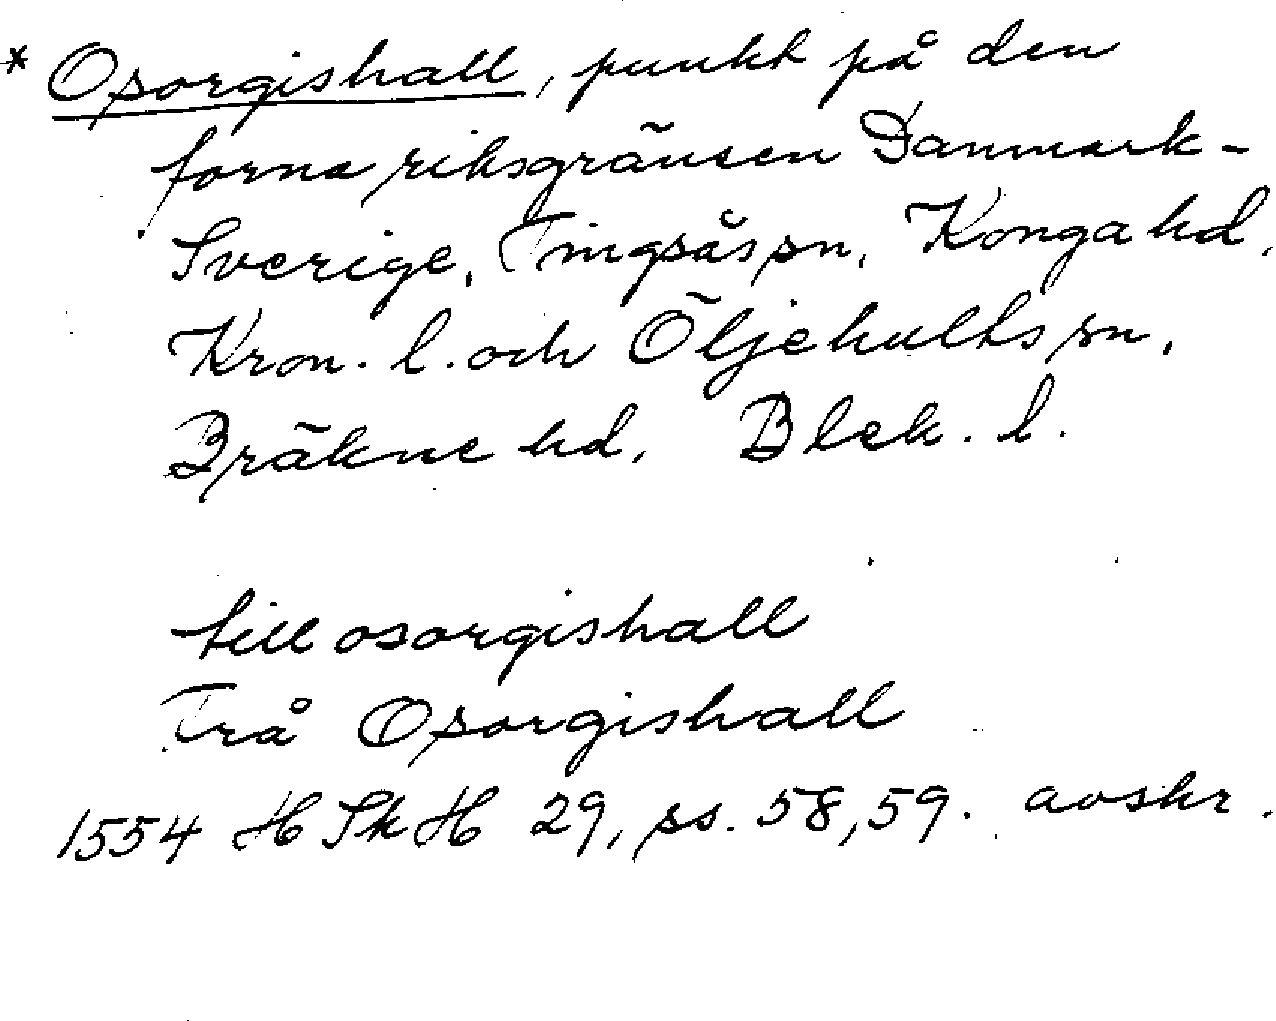 * Osorgishall, punkt på den
forna riksgränsen Danmark-
Sverige, Tingsås sn, Konga hd,
Kron. l. och Öljehults sn,
Bräkne hd, Blek. l.
till osorgishall
Frå Osorgishall
1554 HSkH 29, ss. 58, 59. avskr.